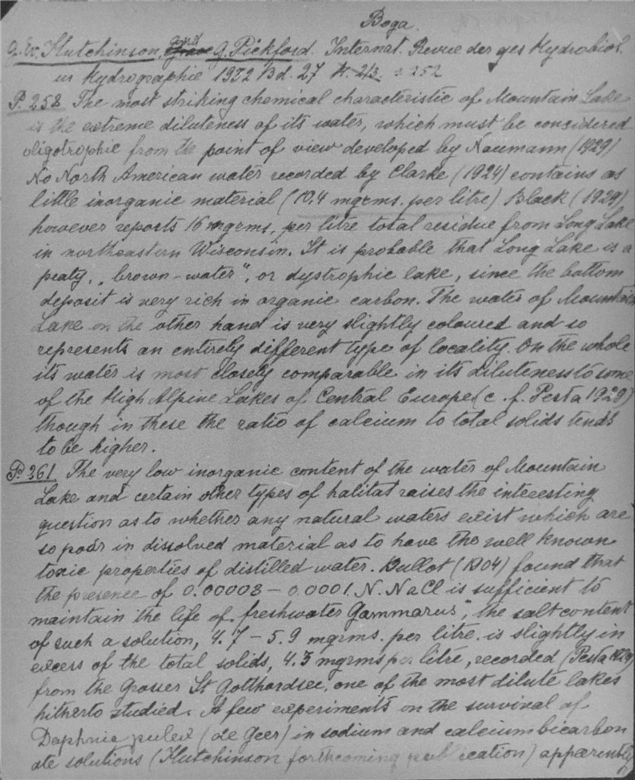 Вода.
G. Ev. Hutchinson, and G. Pickford. Internat. Revue der ges Hydrobiol.
u Hydrographie 1932 Bd. 27 H. 2/3. s 252
P. 258 The most striking chemical characteristic of Mountain Lake
is the extreme diluteness of its water, which must be considered
oligotrophic from the point of view developed by Naumann (1929)
No North American water recorded by Clarke (1924) contains as
little inorganic material (10.4 mgrms. per litre) Black (1929)
however reports 16 mgrms. per litre total residue from Long Lake
in northeastern Wisconsin. It is probable that Long Lake is a
peaty, „brown-water", or dystrophic lake, since the bottom
deposit is very rich in organic carbon. The water of Mountain
Lake on the other hand is very slightly coloured and so
represents an entirely different type of locality. On the whole
its water is most closely comparable in its diluteness to some
of the High Alpine Lakes of Central Europe (c. f. Pesta 1929)
though in these the ratio of calcium to total solids tends
to be higher.
P. 261 The very low inorganic content of the water of Mountain
Lake and certain other types of habitat raises the interesting
question as to whether any natural waters exist which are
so poor in dissolved material as to have the well known
toxic properties of distilled water. Bullot (1904) found that
the presence of 0.00008 – 0.0001 N. NaCl is sufficient to
maintain the life of „freshwater Gammarus", the salt content
of such a solution, 4.7 – 5.9 mgrms. per litre is slightly in
excess of the total solids, 4.3 mgrms per litre, recorded (Pesta 1929)
from the Grosser St Gotthardsee, one of the most dilute lakes
hitherto studied. A few experiments on the survival of
Daphnia pulex (de Geer) in sodium and calcium bicarbon
ate solutions (Hutchinson forthcoming publication) apparently